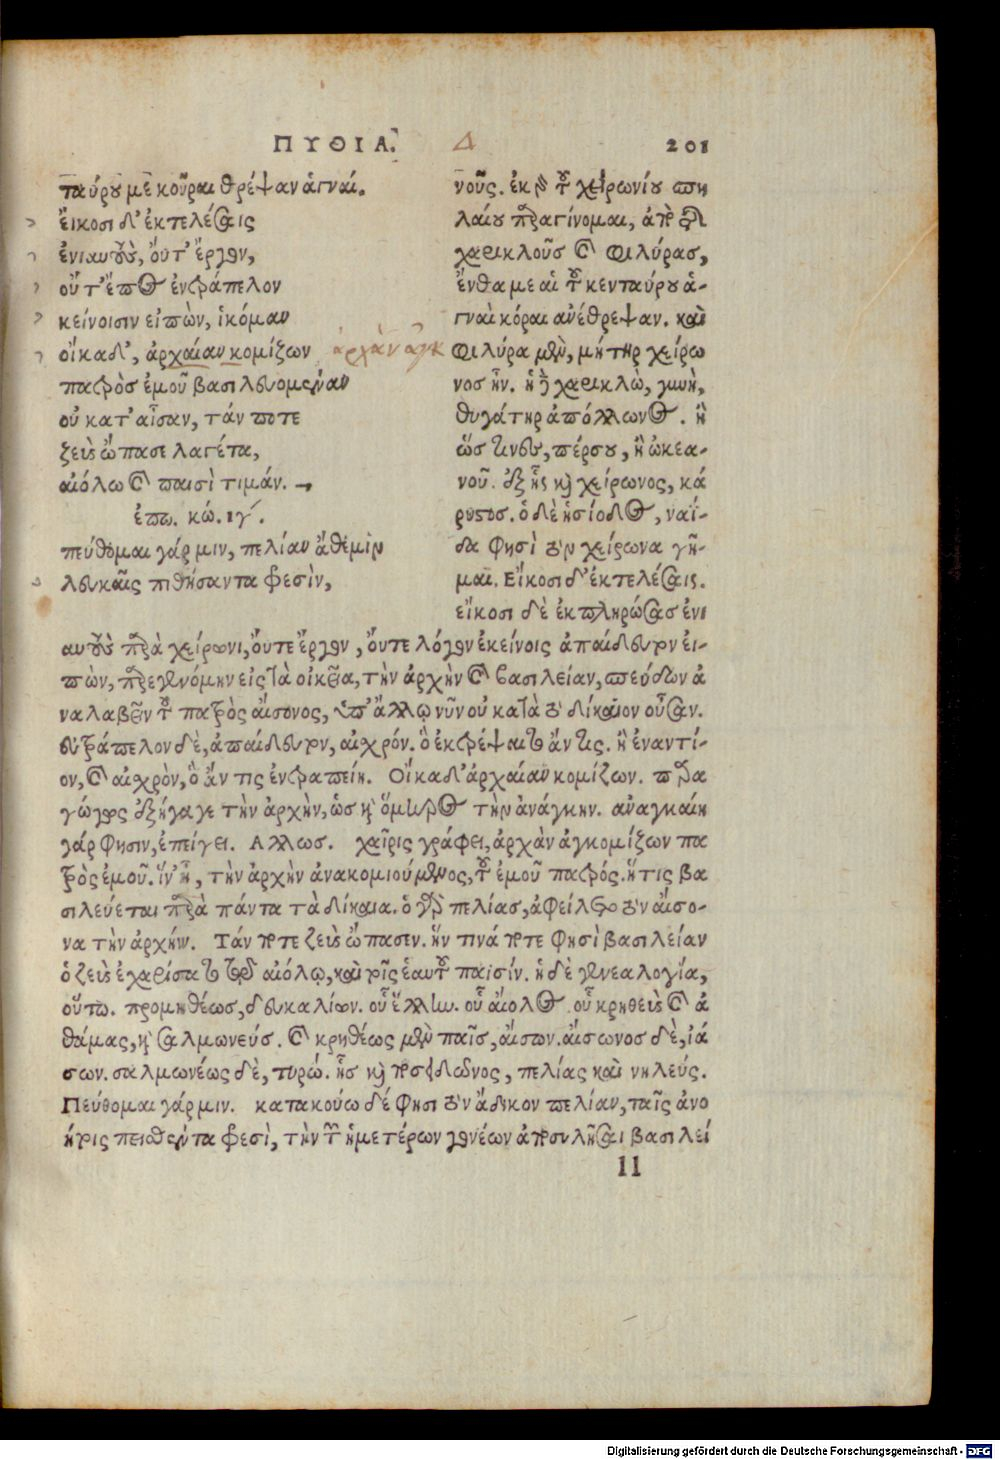 ΠΥΘΙΑ. Δ 201
ταύρου με κοῦραι θρέψαν ἁγναί.
εἴκοσι δ' ἐκτελέσαις
ἐνιαυτοὺς, οὔτ' ἔργον,
οὔτ' ἔπος ἐντράπελον
κείνοισιν εἰπὼν, ἱκόμαν
οἴκαδ', ἀρχαίαν κομίζων ἀρχὰν ἀγκ
πατρὸς ἐμοῦ βασιλευομέναν
οὐ κατ' αἶσαν, τάν ποτε
ζεὺς ὤπασε λαγέτᾳ,
αἰόλῳ καὶ παισὶ τιμάν.
ἐπῳ. κώ. ιγ'.
πεύθομαι γάρ μιν, πελίαν ἄθεμιν
λευκαῖς πιθήσαντα φρεσὶν,
νους. ἐκ γὰρ τοῦ χειρωνίου σπη
λαίου παραγίνομαι, ἀπὸ τῆς
χαρικλοῦς καὶ φιλύρας,
ἔνθα με αἱ τοῦ κενταύρου ἁ-
γναὶ κόραι ἀνέθρεψαν. καὶ
φιλύρα μὲν, μήτηρ χείρω
νος ἦν. ἡ δὲ χαρικλὼ, γυνὴ,
θυγάτηρ ἀπόλλωνος. ἢ
ὥς τινες, πέρσου, ἢ ὠκεα-
νοῦ. ἐξ ἧς καὶ χείρωνος, κά
ρυστος. ὁ δὲ ἡσίοδος, ναί-
δα φησὶ τὸν χείρωνα γῆ-
μαι. Εἴκοσι δ' ἐκτελέσαις.
εἴκοσι δὲ ἐκπληρώσας ἐνι
αυτοὺς παρὰ χείρωνι, οὔτε ἔργον, οὔτε λόγον ἐκείνοις ἀπαίδευτον εἰ-
πὼν, παρεγενόμην εἰς τὰ οἰκεῖα, τὴν ἀρχὴν καὶ βασιλείαν, σπεύδων ἀ
ναλαβεῖν τοῦ πατρὸς αἴσονος, ὑπ' ἄλλῳ νῦν οὐ κατὰ τὸ δίκαιον οὖσαν.
εὐτράπελον δὲ, ἀπαίδευτον, αἰσχρόν. ὃ ἐκτρέψαιτο ἄν τις. ἢ ἐναντί-
ον, καὶ αἰσχρὸν, ὃ ἄν τις ἐντραπείη. Οἴκαδ' ἀρχαίαν κομίζων. παρα
γώγως ἐξήγαγε τὴν ἀρχὴν, ὡς καὶ ὅμηρος τὴν ἀνάγκην. ἀναγκαίη
γάρ φησιν, ἐπείγει. Αλλως. χαῖρις γράφει, ἀρχὰν ἀγκομίζων πα
τρὸς ἐμοῦ. ἵν' ᾖ, τὴν ἀρχὴν ἀνακομιούμενος, τοῦ ἐμοῦ πατρός. ἥτις βα
σιλεύεται παρὰ πάντα τὰ δίκαια. ὁ γὰρ πελίας, ἀφείλετο τὸν αἴσο-
να τὴν ἀρχήν. Τάν ποτε ζεὺς ὤπασεν. ἥν τινά ποτε φησὶ βασιλείαν
ὁ ζεὺς ἐχαρίσατο τῷ αἰόλῳ, καὶ τοῖς ἑαυτοῦ παισίν. ἡ δὲ γενεαλογία,
οὕτω. προμηθέως, δευκαλίων. οὗ ἕλλην. οὗ αἴολος. οὗ κρηθεὺς καὶ ἀ
θάμας, καὶ σαλμωνεύς. καὶ κρηθέως μὲν παῖς, αἴσων. αἴσωνος δὲ, ἰά
σων. σαλμωνέως δὲ, τυρώ. ἧς καὶ ποσειδῶνος, πελίας καὶ νηλεύς.
Πεύθομαι γάρ μιν. κατακούω δέ φησι τὸν ἄδικον πελίαν, ταῖς ἀνο
ήτοις πεισθέντα φρεσὶ, τὴν τῶν ἡμετέρων γονέων ἀποσυλῆσαι βασιλεί
ll
Digitalisierung gefördert durch die Deutsche Forschungsgemeinschaft - DFG